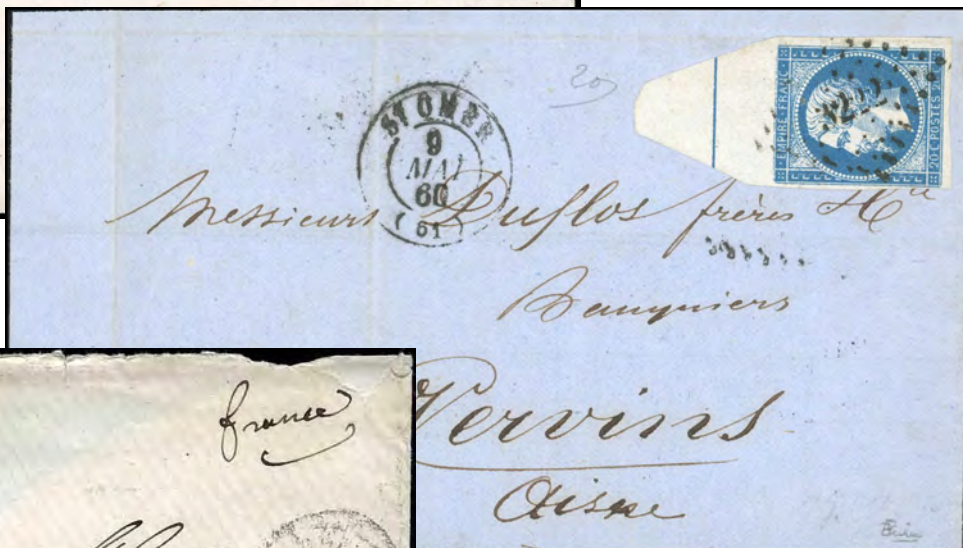 20
ST OMER
9
MAI
60
( 61 )
EMPIRE FRANC
20 C POSTES 20 C
Messieurs Duflos frères
Banquiers
Vervins
Aisne
france